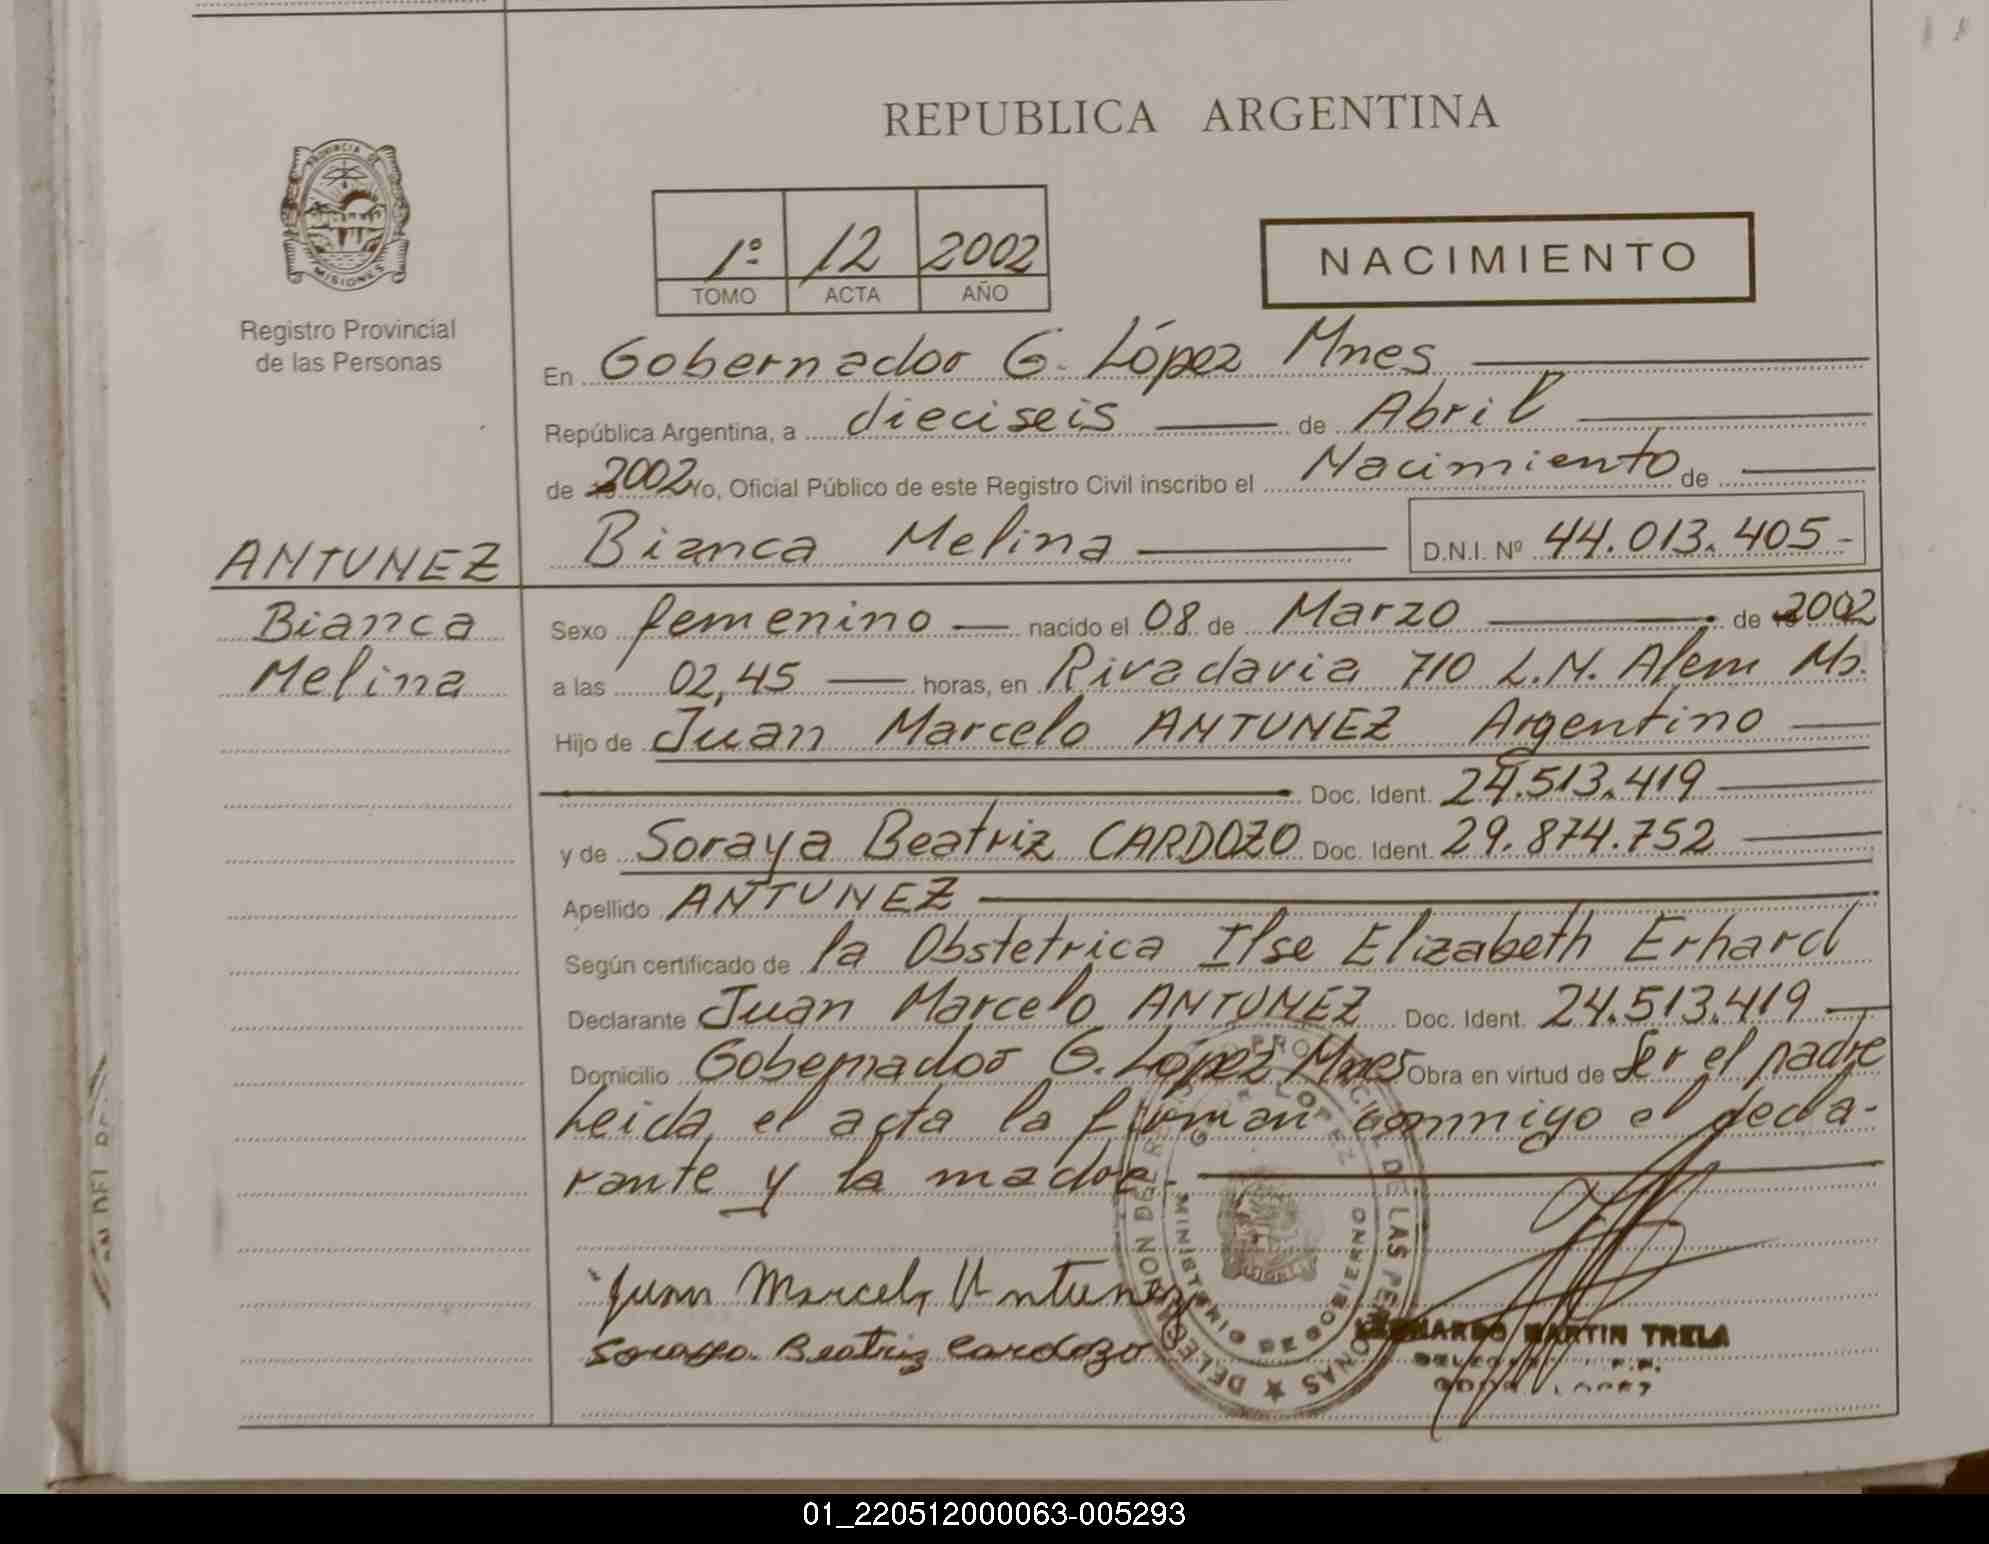 REPUBLICA ARGENTINA
PROVINCIA DE
MISIONES
Registro Provincial
de las Personas
1º 12 2002
TOMO ACTA AÑO
NACIMIENTO
En Gobernador G. López Mnes
República Argentina, a dieciseis de Abril
de 2002 Yo, Oficial Público de este Registro Civil inscribo el Nacimiento de
Bianca Melina D.N.I. Nº 44.013.405-
ANTUNEZ
Bianca
Melina
Sexo femenino nacido el 08 de Marzo de 2002
a las 02,45 horas, en Rivadavia 710 L.N. Alem Ms.
Hijo de Juan Marcelo ANTUNEZ Argentino
Doc. Ident. 24.513.419
y de Soraya Beatriz CARDOZO Doc. Ident. 29.874.752
Apellido ANTUNEZ
Según certificado de la Obstetrica Ilse Elizabeth Erhard
Declarante Juan Marcelo ANTUNEZ Doc. Ident. 24.513.419
Domicilio Gobernador G. López Mnes Obra en virtud de Ser el padre
Leida el acta la firman conmigo el decla-
rante y la madre.
Juan Marcelo Antunez
Soraya Beatriz Cardozo
MINISTERIO DE GOBIERNO
MARTIN TRELA
01_220512000063-005293